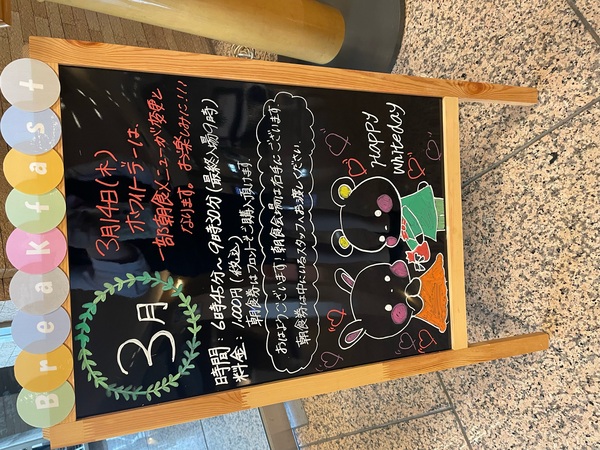 Breakfast
3月
3月14日(木)
ホワイトデーは、
一部朝食メニューが変更と
なります。お楽しみに!!!
時間：6時45分～9時30分(最終入場9時)
料金：1,000円(税込)
朝食券はフロントでご購入頂けます。
おはようございます！朝食会場は右手にございます
朝食券は中にいるスタッフへお渡しください。
HAPPY
Whiteday